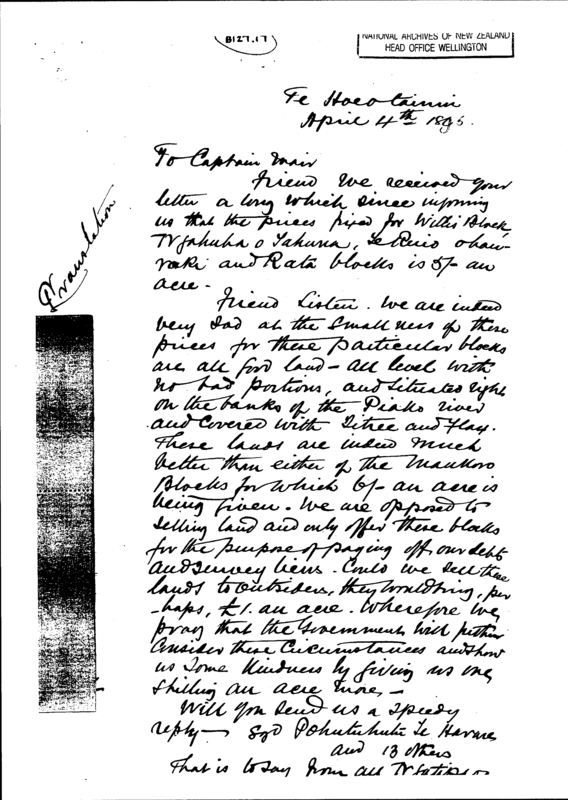 B127.17
NATIONAL ARCHIVES OF NEW ZEALAND
HEAD OFFICE WELLINGTON
Te Hoeotainui
April 4th 1895.
Translation
To Captain Mair
Friend We received your
letter a long which since informing
us that the prices fixed for Willis Block,
o Takurua, Te Reio ohau-
and Rata blocks is 5/- an
acre -
Friend Listen. We are indeed
very sad at the smallness of these
prices for these particular blocks
are all good land - all level with
no bad portions, and situated right
on the banks of the Piako river
and covered with Titree and flax.
These lands are indeed much
better than either of the Maukoro
Blocks for which 6/- an acre is
being given. We are opposed to
selling land and only offer these blocks
for the purpose of paying off our debts
and survey liens. Could we sell these
lands to outsiders, they would bring, per
-haps, £1. an acre. Wherefore we
pray that the Government will further
consider these circumstances and show
us some kindness by giving us one
shilling an acre more -
Will you send us a speedy
reply - Sgd Te
and 13 others
That is to say from all